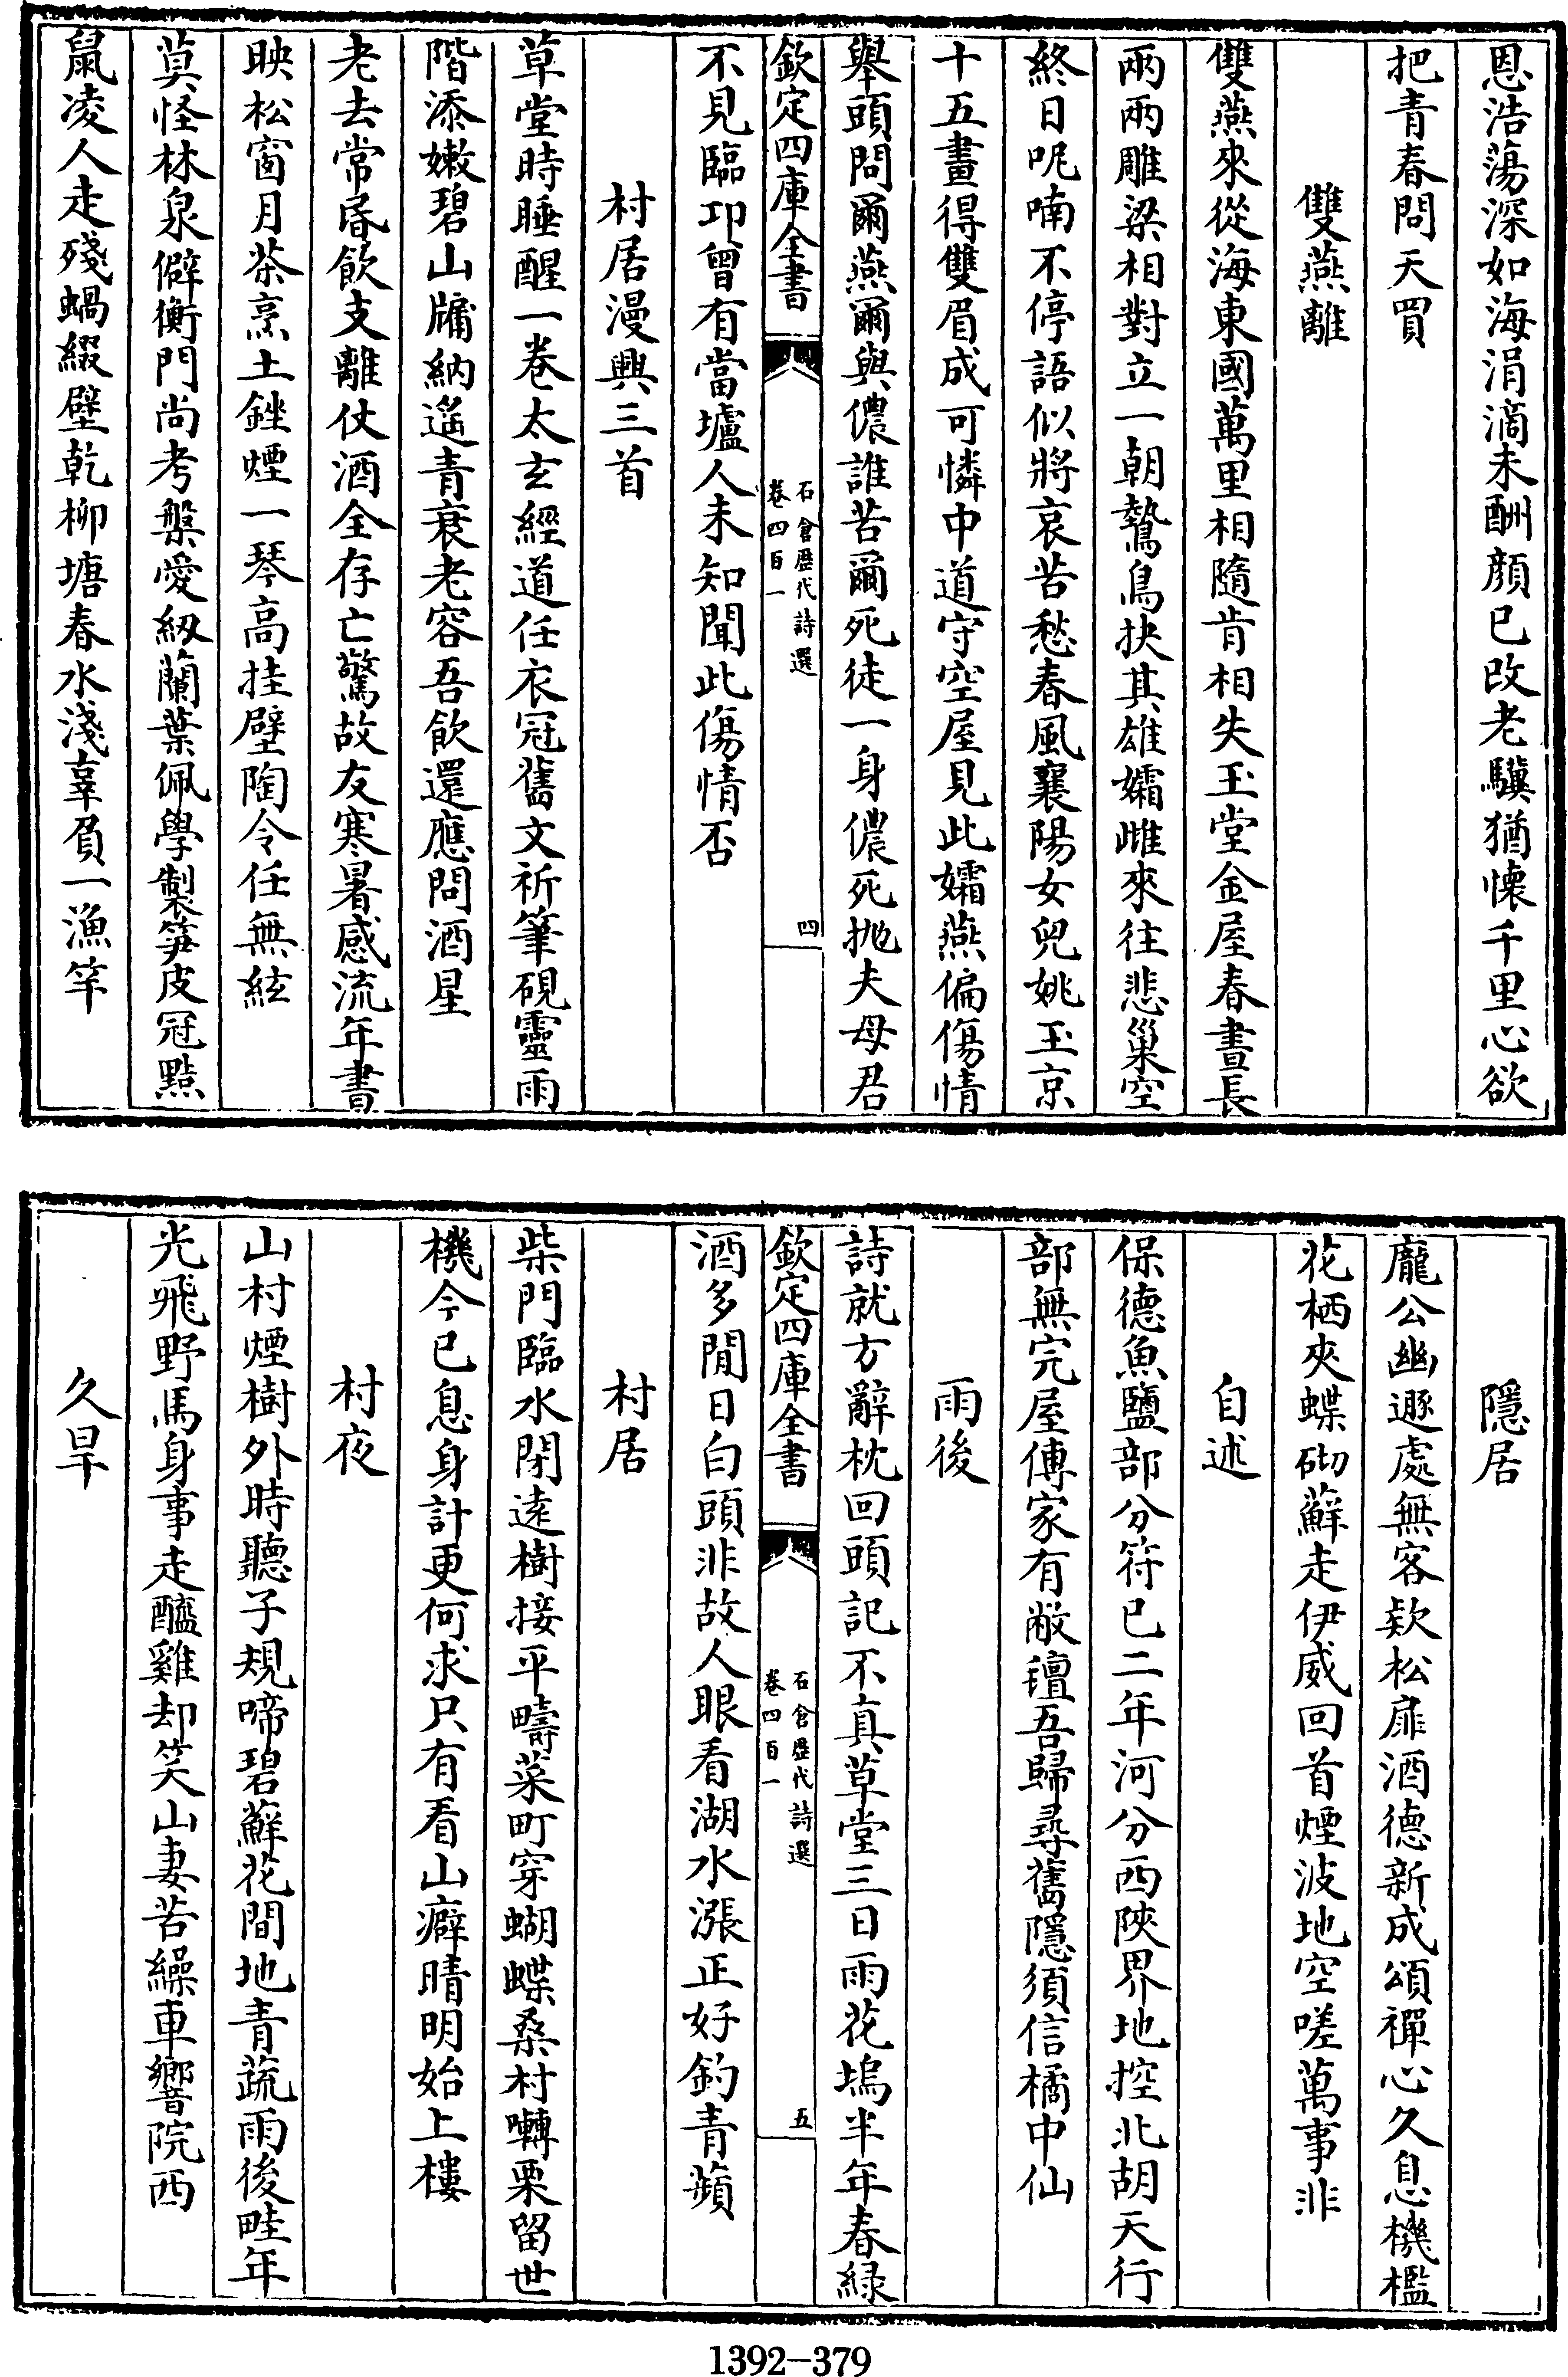 恩浩蕩深如海涓滴未酬顔已改老驥猶懐千里心欲
把青春問天買
雙燕離
雙燕來從海東國萬里相隨肯相失玉堂金屋春晝長
兩兩雕梁相對立一朝鷙鳥抉其雄孀雌來往悲巢空
終日呢喃不停語似將哀苦愁春風襄陽女兒姚玉京
十五畫得雙眉成可憐中道守空屋見此孀燕偏傷情
舉頭問爾燕爾與儂誰苦爾死徒一身儂死抛夫母君
欽定四庫全書
石倉歴代詩選
卷四百一
四
不見臨卭曾有當壚人未知聞此傷情否
村居漫興三首
草堂時睡醒一卷太玄經道任衣冠舊文祈筆硯靈雨
階添嫩碧山牖納遙青衰老容吾飲還應問酒星
老去常昏飲支離仗酒全存亡驚故友寒暑感流年書
映松窗月茶烹土銼煙一琴高挂壁陶令任無絃
莫怪林泉僻衡門尚考槃愛紉蘭葉佩學製笋皮冠點
鼠凌人走殘蝸綴壁乾柳塘春水淺辜負一漁竿
隱居
龐公幽遯處無客欵松扉酒德新成頌禪心久息機檻
花栖夾蝶砌蘚走伊威回首煙波地空嗟萬事非
自述
保德魚鹽部分符已二年河分西陝界地控北胡天行
部無完屋傳家有敝氊吾歸尋舊隱須信橘中仙
雨後
詩就方辭枕回頭記不真草堂三日雨花塢半年春緑
欽定四庫全書
石倉歴代詩選
卷四百一
五
酒多閒日白頭非故人眼看湖水漲正好釣青蘋
村居
柴門臨水閉遠樹接平疇菜町穿蝴蝶桑村囀栗留世
機今已息身計更何求只有看山癖晴明始上樓
村夜
山村煙樹外時聽子規啼碧蘚花間地青蔬雨後畦年
光飛野馬身事走醯雞却笑山妻苦繰車響院西
久旱
1392-379